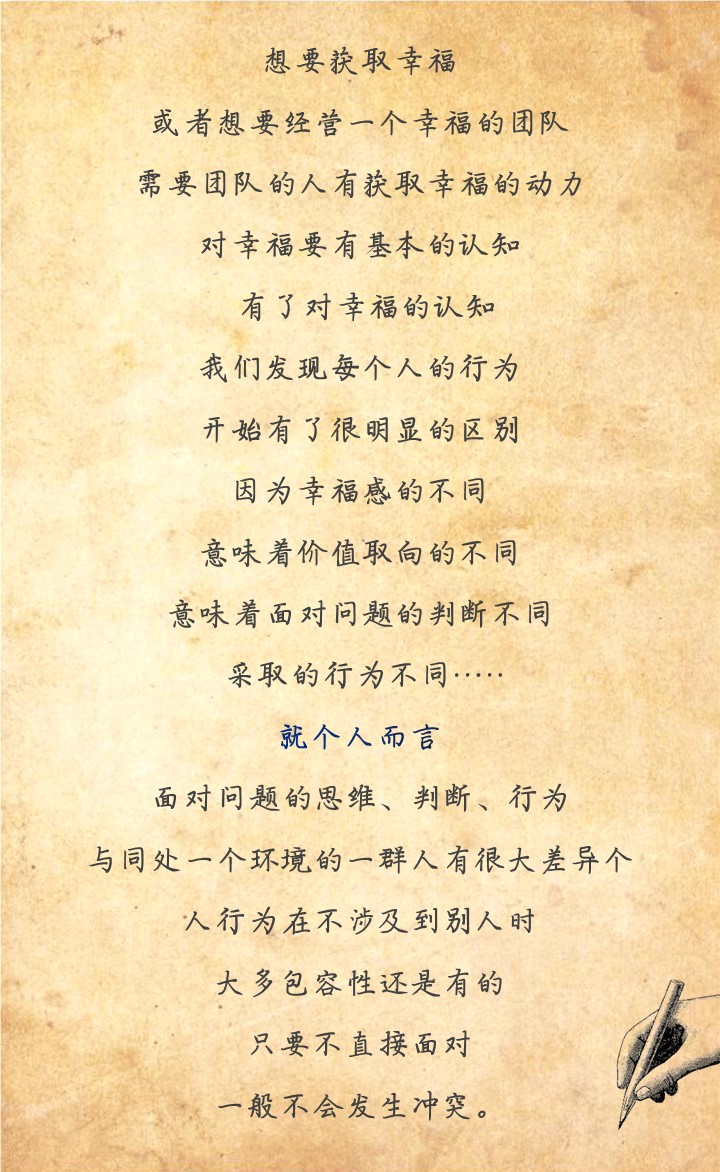 想要获取幸福
或者想要经营一个幸福的团队
需要团队的人有获取幸福的动力
对幸福要有基本的认知
有了对幸福的认知
我们发现每个人的行为
开始有了很明显的区别
因为幸福感的不同
意味着价值取向的不同
意味着面对问题的判断不同
采取的行为不同·····
就个人而言
面对问题的思维、判断、行为
与同处一个环境的一群人有很大差异个
人行为在不涉及到别人时
大多包容性还是有的
只要不直接面对
一般不会发生冲突。